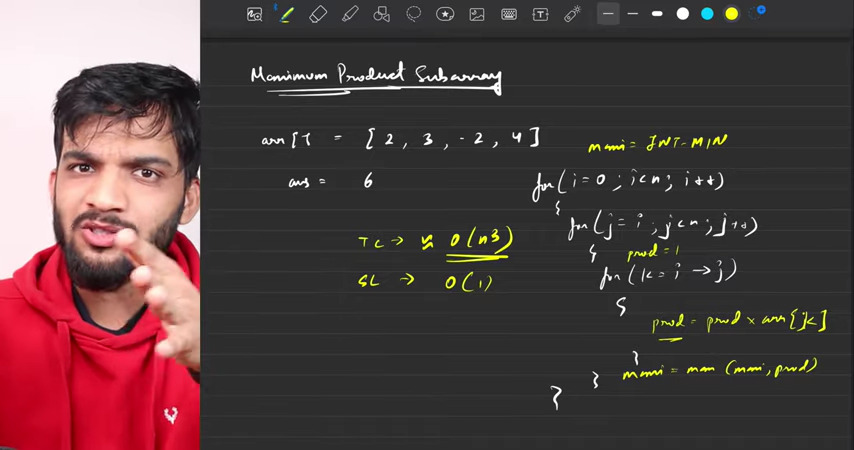 Maximum Product Subarray
arr[] = [2, 3, -2, 4]
ans = 6
TC → ≈ O(n3)
SC → O(1)
maxi = INT-MIN
for(i=0; i<n; i++)
{
for(j=i; j<n; j++)
{ prod=1
for(k=i→j)
{
prod = prod x arr[k]
}
maxi = max(maxi, prod)
}
}